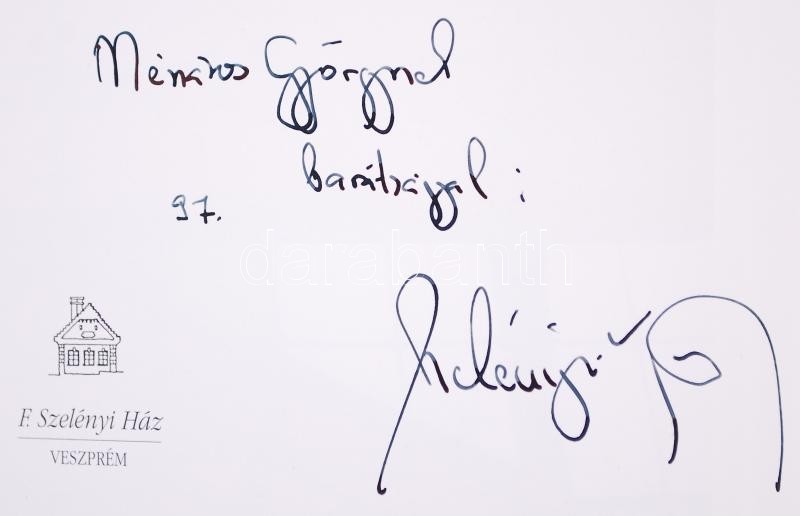 Mészáros Györgynek
barátsággal:
97.
darabanth
Szelényi
F. Szelényi Ház
VESZPRÉM